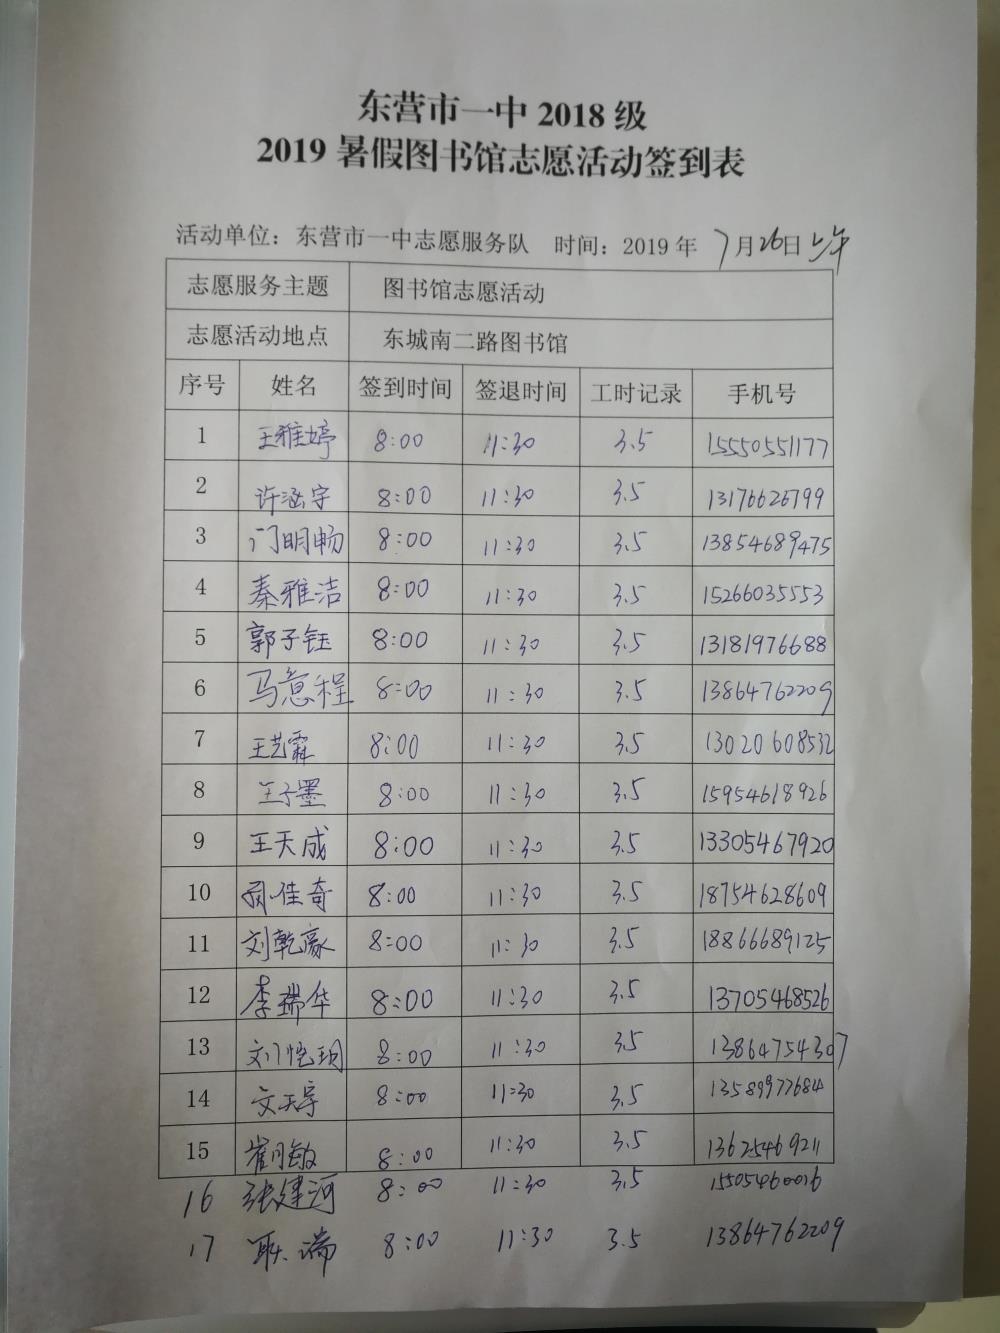 东营市一中 2018 级
2019 暑假图书馆志愿活动签到表
活动单位：东营市一中志愿服务队 时间：2019 年 7月26日上午
志愿服务主题 图书馆志愿活动
志愿活动地点 东城南二路图书馆
序号 姓名 签到时间 签退时间 工时记录 手机号
1 王雅婷 8:00 11:30 3.5 15550551177
2 许涵宇 8:00 11:30 3.5 13176626799
3 门明畅 8:00 11:30 3.5 13854689475
4 秦雅洁 8:00 11:30 3.5 15266035553
5 郭子钰 8:00 11:30 3.5 13181976688
6 马意程 8:00 11:30 3.5 13864762209
7 王艺霖 8:00 11:30 3.5 13020608532
8 王子墨 8:00 11:30 3.5 15954618926
9 王天成 8:00 11:30 3.5 13305467920
10 8:00 11:30 3.5 18754628609
11 刘乾豪 8:00 11:30 3.5 18866689125
12 李瑞华 8:00 11:30 3.5 13705468526
13 8:00 11:30 3.5 13864754307
14 8:00 11:30 3.5 13589977684
15 8:00 11:30 3.5 13625469211
16 张建河 8:00 11:30 3.5 15505460016
17 8:00 11:30 3.5 13864762209